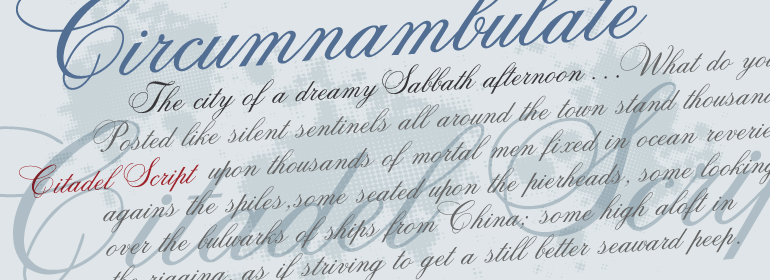 Circumnambulate
The city of a dreamy Sabbath afternoon ... What do you
Posted like silent sentinels all around the town stand thousan
Citadel Script upon thousands of mortal men fixed in ocean reverie
agains the spiles,some seated upon the pierheads, some looking
over the bulwarks of ships from China; some high aloft in
the rigging, as if striving to get a still better seaward peep.
Citadel Scrip